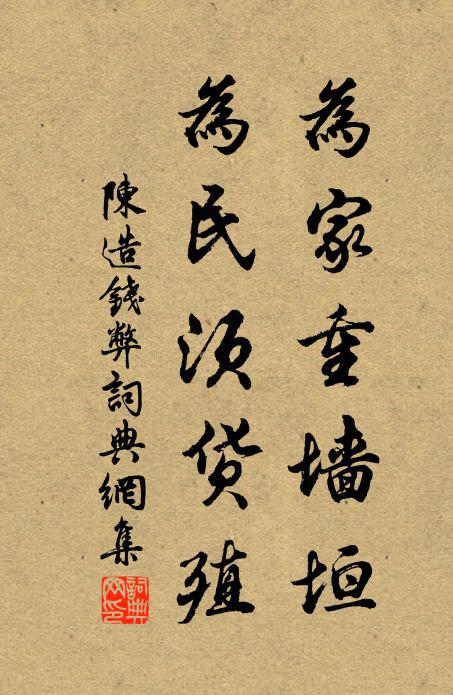 為家重墻垣
為民須貨殖
陳造錢弊詞典網集
詞典網印